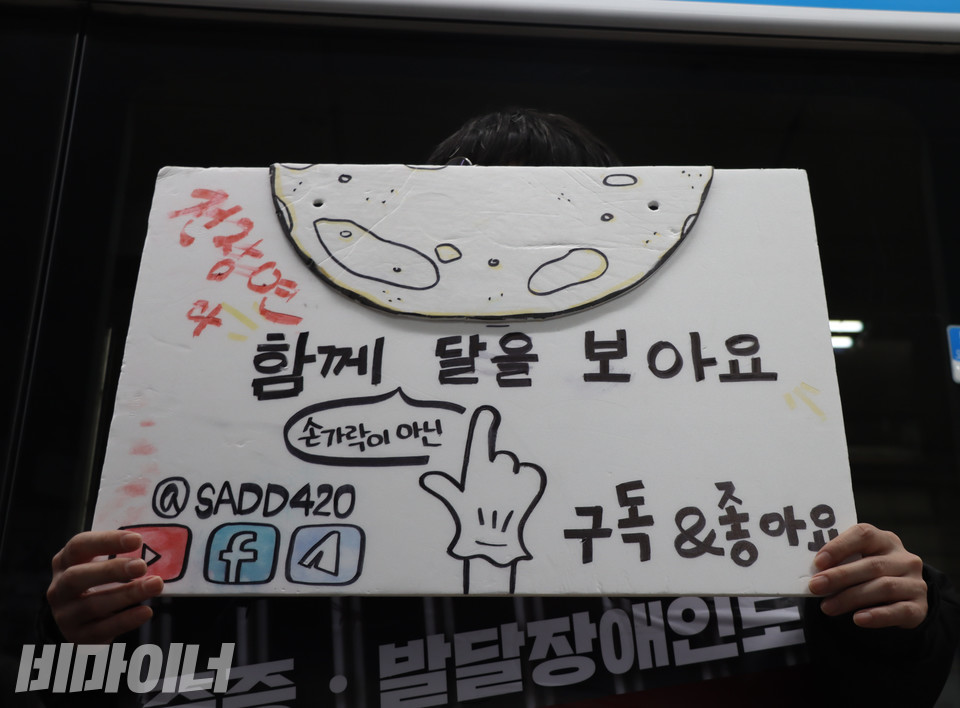 전장연
함께 달을 보아요
손가락이 아닌
@SADD420
구독&좋아요
· 발달장애인도
비마이너